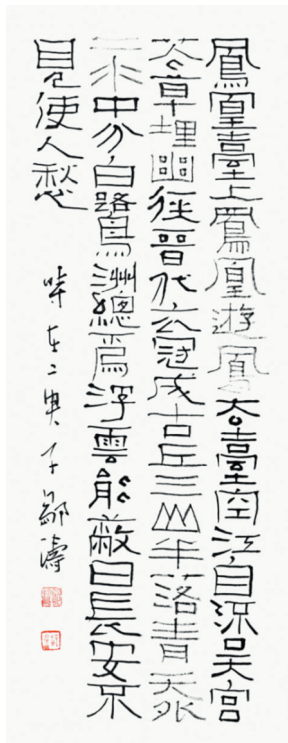 鳳皇臺上鳳凰遊鳳去臺空江自流吳宮
花草埋幽徑晉代衣冠成古丘三山半落青天外
二水中分白鷺洲總為浮雲能蔽日長安不
見使人愁
時在 鄒濤